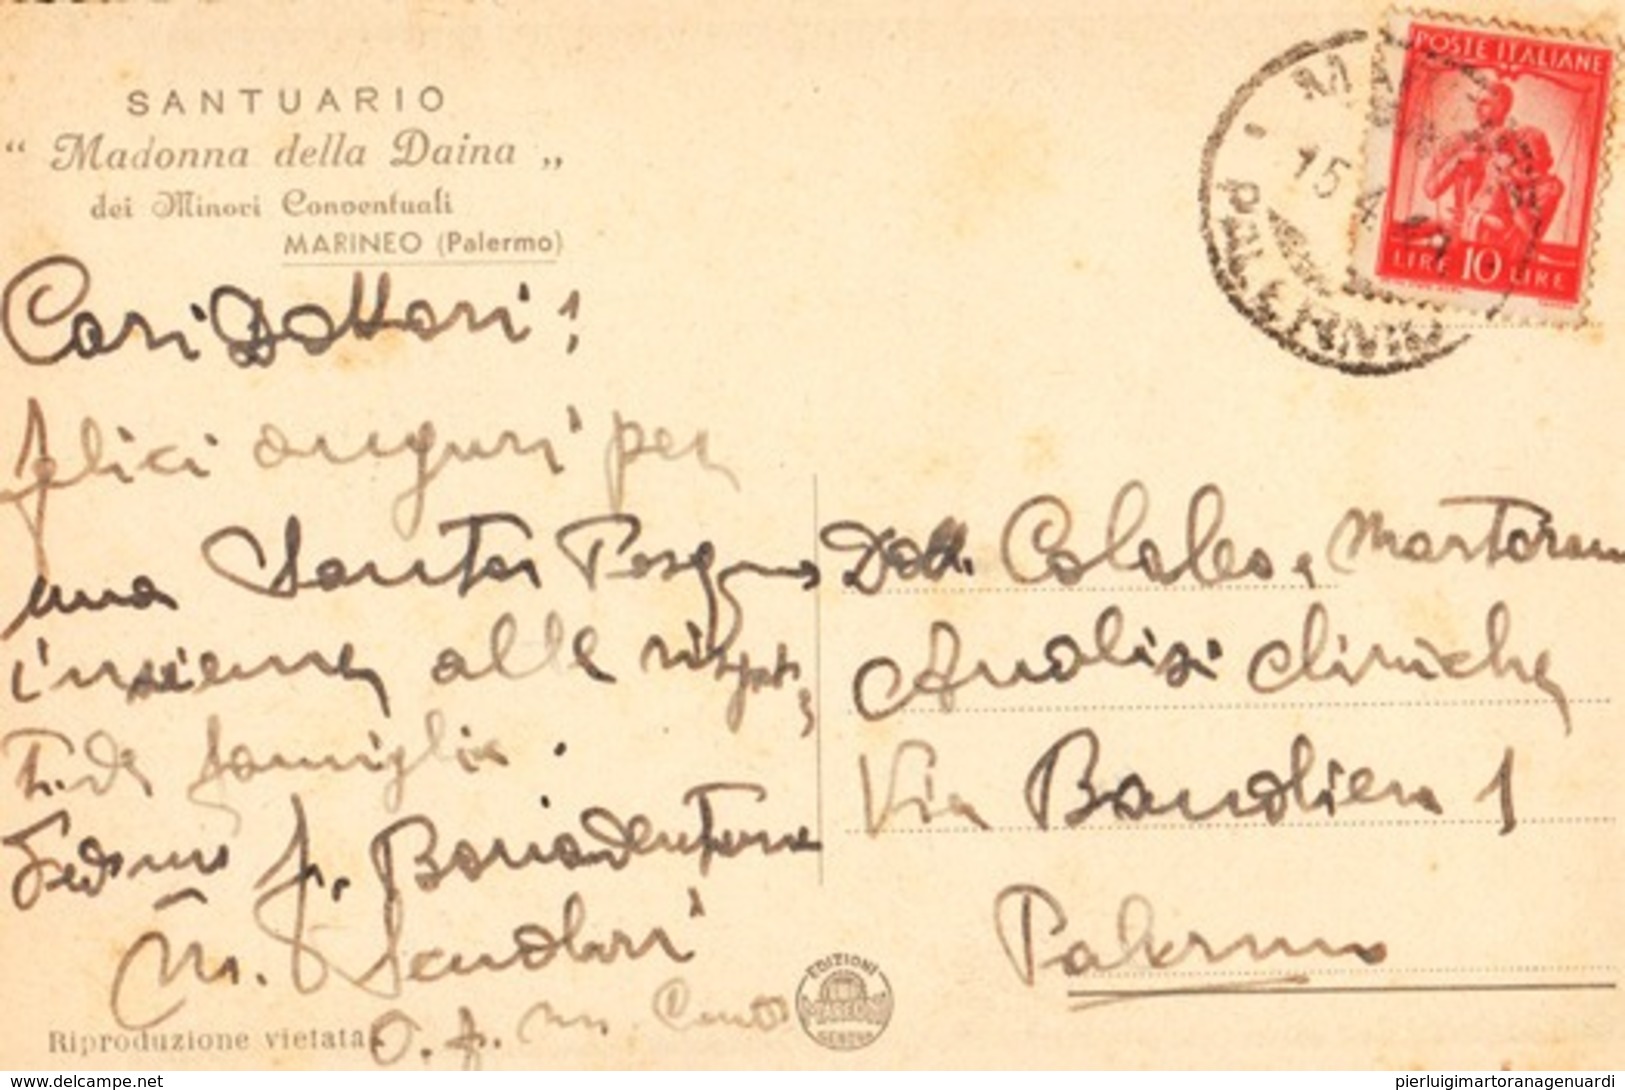 SANTUARIO
“ Madonna della Daina „
dei Minori Conventuali
MARINEO (Palermo)
POSTE ITALIANE
LIRE 10 LIRE
15 4
PALERMO
Cari Dottori!
felici auguri per
una Santa Pasqua
insieme alle rispet
tive famiglie.
fr. Bonaventura
M. Scudari
O. f. m. Conv
Dott. Calaleo, Martorana
Analisi Cliniche
Via Bandiera 1
Palermo
EDIZIONI
GENOVA
Riproduzione vietata
www.delcampe.net
pierluigimartoranagenuardi